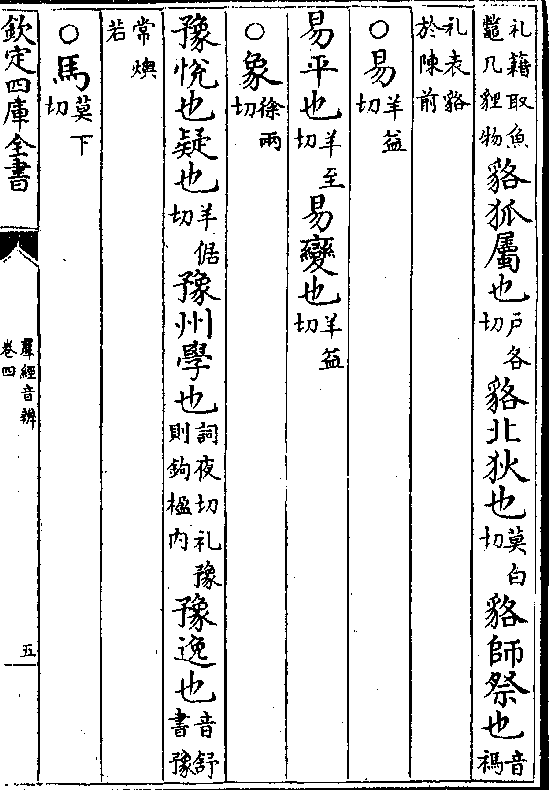 礼藉取魚鼈凡貍物貉狐屬也戶各切貉北狄也莫白切貉師祭也音禡
礼表貉於陳前
○易羊益切
易平也羊至切易變也羊益切
○象徐兩切
豫悅也疑也羊倨切豫州學也詞夜切礼豫則鉤楹内豫逸也音舒書豫
常燠若
○馬莫下切
欽定四庫全書
羣經音辨
卷四
五